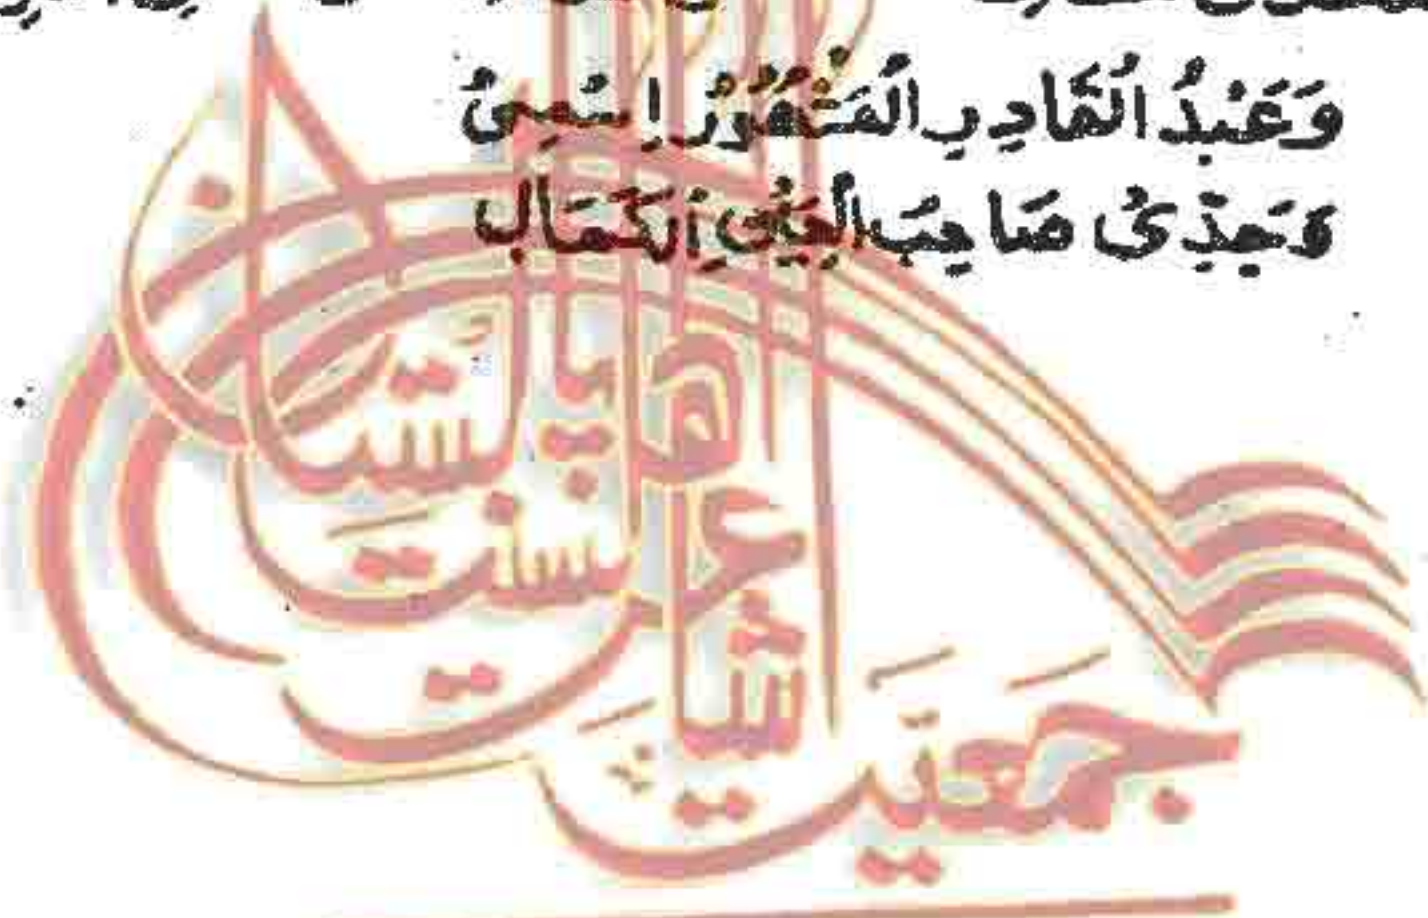 وَعَبْدُ الْقَادِرِ الْمَشْهُورُ اِسْمِیْ
وَجَدِّیْ صَاحِبُ الْعَيْنِ الْكَمَالِ
جمعیت
اشاعت
اہلسنت
پاکستان